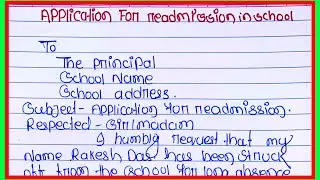 Application for readmission in school
To
The principal
School Name
School address.
Subject - Application for readmission.
Respected - Sir/madam
I humbly request that my
name Rakesh Das has been struck
off from the school for long absence